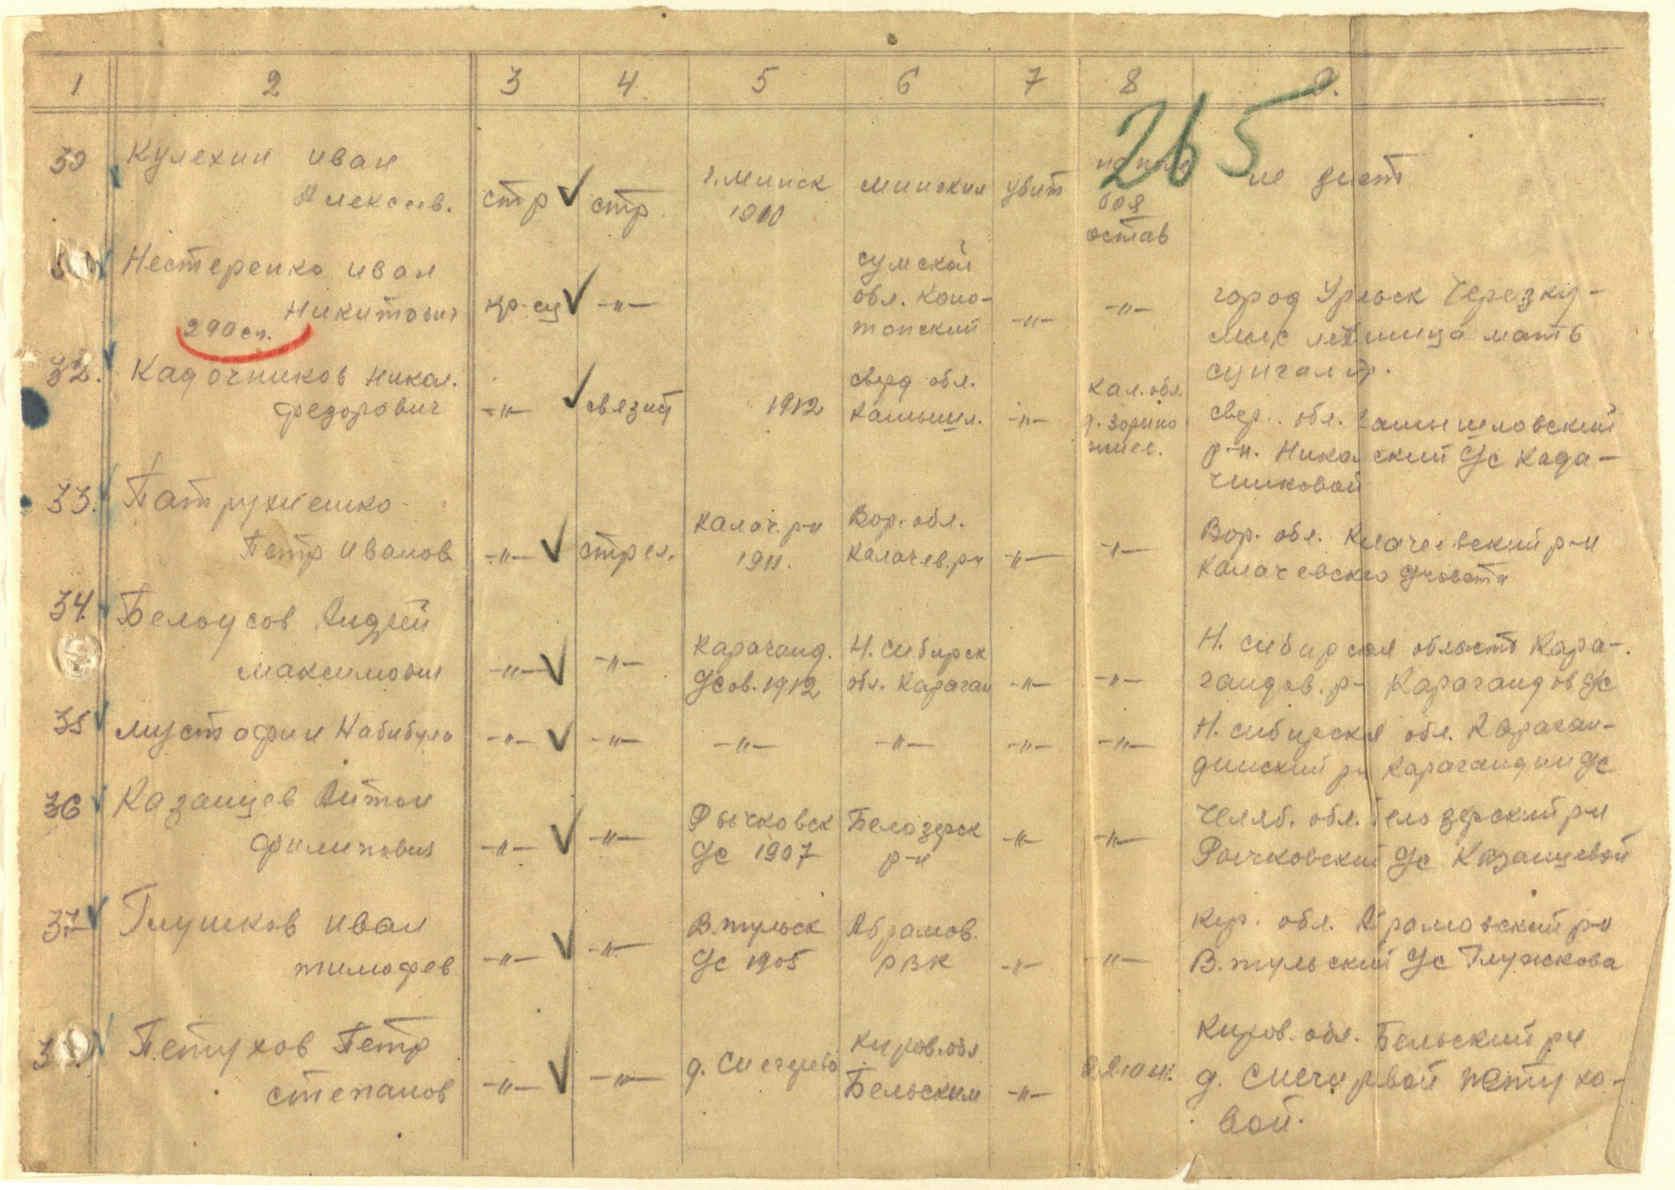 1 2 3 4 5 6 7 8 9.
265
30 Кулехин Иван
Алексеев. стр стр. г. Минск
1910 Минский убит
боя
остав
не дост
Нестеренко Иван
Никитович кр-ец -"- Сумской
обл. Коно-
топский -"- -"- город Уральск
мать
290 сд.
32. Кадочников Никол.
Федорович -"- связист 1912 Сверд обл.
Камышл. -"- Кал. обл.
Свер. обл. Камышловский
р-н. Никольский с/с Када-
чниковой
33. Патрухненко
Петр Иванов -"- стрел. Калач. р-н
1911. Вор. обл.
Калачев. р-н -"- -"- Вор. обл. Калачеевский р-н
Калачевского
34. Белоусов Андрей
Максимович -"- -"- Караганд.
с/сов. 1912 Н. Сибирск
обл. Караган -"- -"- Н. Сибирская область Кара-
гандов. р- Карагандов с/с
35 Мустафин Набибула -"- -"- -"- -"- -"- -"- Н. Сибирская обл. Караган-
динский р-н Карагандин с/с
36 Казанцев Антон
Филипович -"- -"- Рычковск
с/с 1907 Белозерск
р-н -"- -"- Челяб. обл. Белозерский р-н
Рычковский с/с Казанцевой
37 Глушков Иван
Тимофев -"- -"- В. тульск
с/с 1905 Абрамов.
РВК -"- -"- Кир. обл. Абрамовский р-н
В. тульский с/с Глушкова
Петухов Петр
Степанов -"- -"- д. Снегирево Киров. обл
Бельским -"- Киров. обл. Бельский р-н
д. Снегиревой Петухо-
вой.